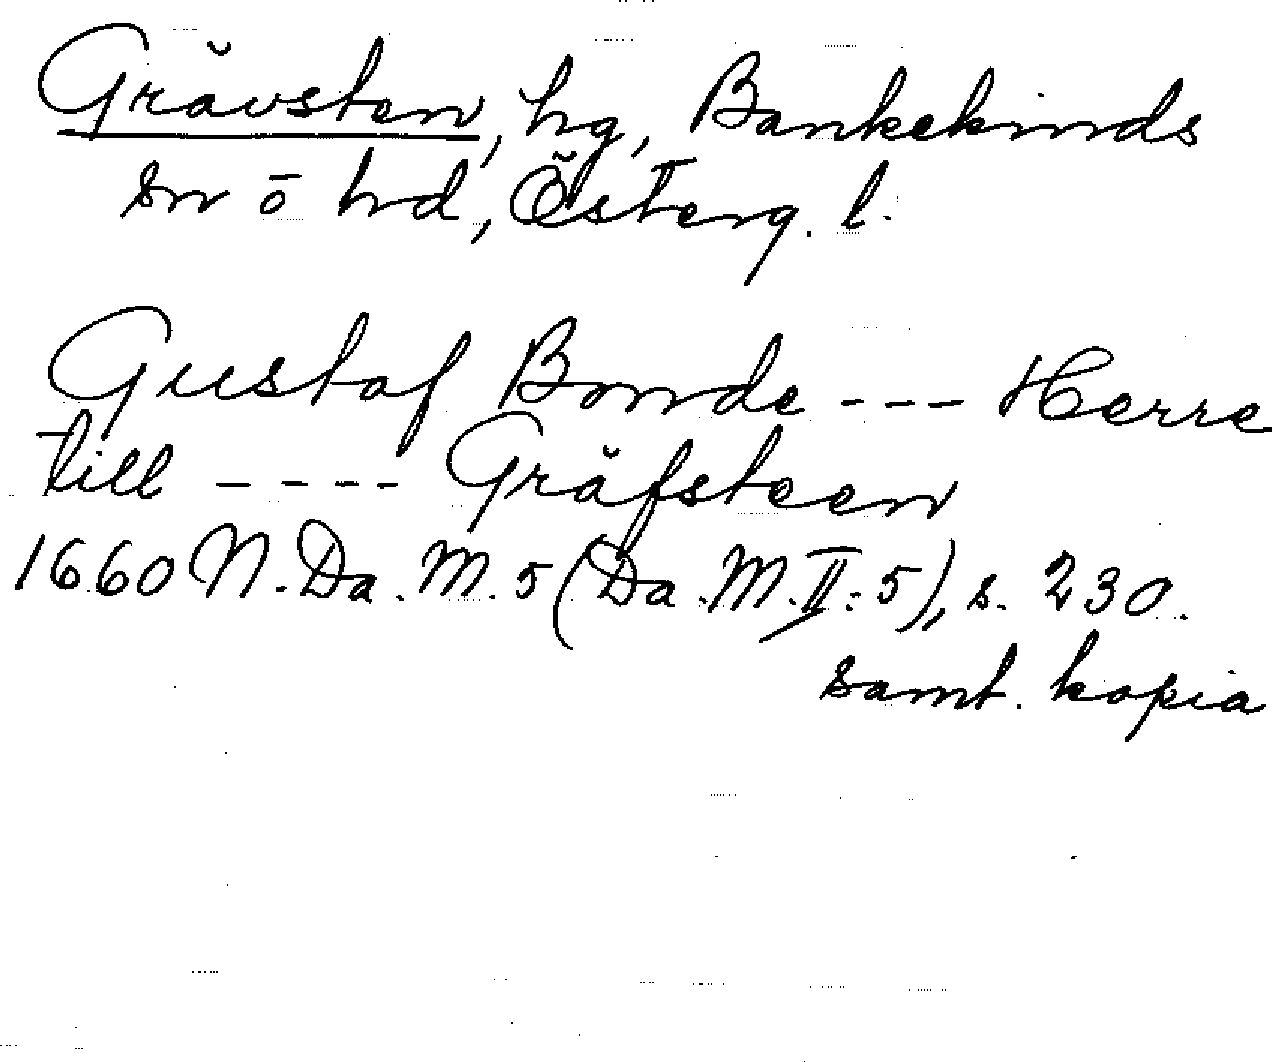 Grävsten, hg, Bankekinds
sn ō hd, Österg. l.
Gustaf Bonde --- Herre
till ---- Gräfsteen
1660 N. Da. M. 5 (Da. M. II: 5), s. 230.
samt. kopia